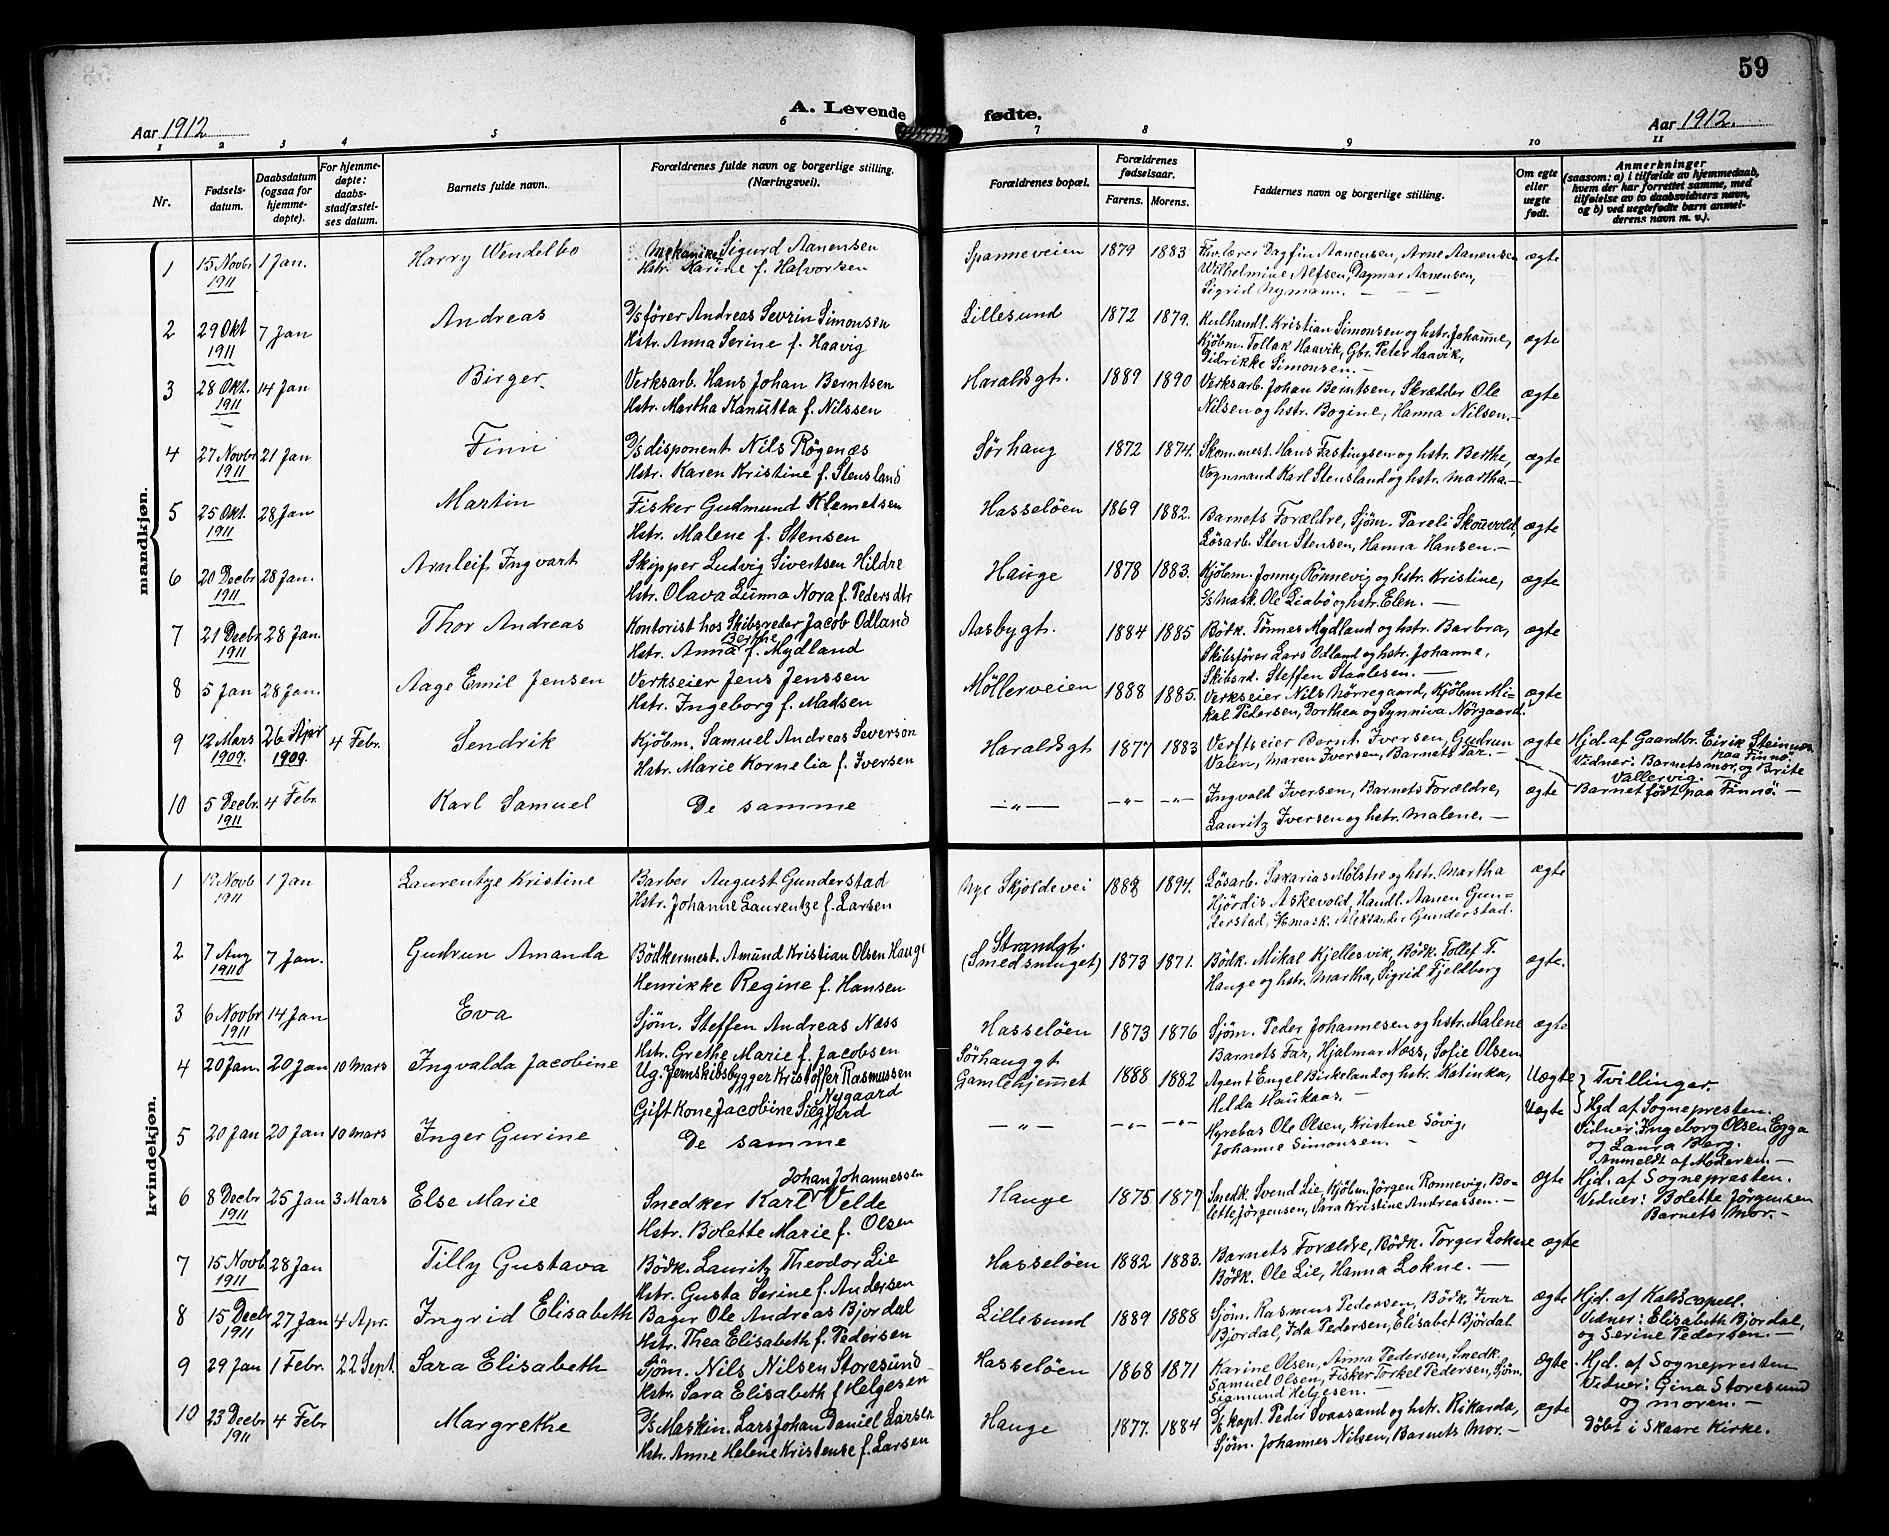 59
A. Levende fødte.
Aar 1912
Aar 1912.
1 2 3 4 5 6 7 8 9 10 11
Nr.
Fødsels-
datum.
Daabsdatum
(ogsaa for
hjemme-
døpte).
For hjemme-
døpte:
daabs-
stadfæstel-
ses datum.
Barnets fulde navn.
Forældrenes fulde navn og borgerlige stilling.
(Næringsvei).
Forældrenes bopæl.
Forældrenes
fødselsaar.
Farens. Morens.
Faddernes navn og borgerlige stilling.
Om egte
eller
uegte
født.
Anmerkninger
(saasom: a) i tilfælde av hjemmedaab,
hvem der har forrettet samme, med
tilføielse av to daabsvidners navn,
og b) ved uegtefødte barn anmel-
derens navn m. v.).
mandkjøn.
1 15 Novbr 1911 1 Jan. Harry Wendelbo
Mekaniker Sigurd Aanensen
Hstr. Karine f. Halvorsen
Spanneveien 1879 1883
Fiv.lærer Dagfin Aanensen, Arne Aanensen
Wilhelmine Alfsen, Dagmar Aanensen,
Sigrid Nymann. —
ægte
2 29 Okt 1911 7 Jan Andreas
D/s fører Andreas Sevrin Simonsen
Hstr. Anna Serine f. Haavig
Lillesund 1872 1879.
Kulhandl. Kristian Simonsen og hstr. Johanne,
Kjöbm. Tollak Haavik, Gbr. Peter Haavik,
Didrikke Simonsen. —
ægte
3 28 Okt. 1911 14 Jan Birger
Verksarb. Hans Johan Berntsen
Hstr. Martha Kanutta f. Nilssen
Haraldsgt. 1889 1890
Verksarb. Johan Berntsen, Skrædder Ole
Nilsen og hstr. Bogine, Hanna Nilsen. —
ægte
4 27 Novbr 1911 21 Jan Finn
D/s disponent Nils Røgenæs
Hstr. Karen Kristine f. Stensland
Sørhaug 1872 1874.
Skom.mest. Hans Fastingsen og hstr. Berthe,
Vognmand Karl Stensland og hstr. Martha. —
ægte
5 25 Okt. 1911 28 Jan Martin
Fisker Gudmund Klemetsen
Hstr. Malene f. Stensen
Hasseløen 1869 1882.
Barnets Forældre, Sjöm. Tareli Skouvold,
Løsarb. Sten Stensen, Hanna Hansen. —
ægte
6 20 Decbr 1911 28 Jan. Arnleif Ingvart
Skipper Ludvig Sivertsen Hildre
Hstr. Olava Lünna Nora f. Pedersdtr
Hauge 1878 1883.
Kjöbm. Jonny Rönnevig og hstr. Kristine,
S/s Mask. Ole Liabö og hstr. Elen. —
ægte
7 21 Decbr. 1911 28 Jan. Thor Andreas
Kontorist hos Skibsreder Jacob Odland
Hstr. Anna Berthe f. Mydland
Aasbygt. 1884 1885
Bödk. Tönnes Mydland og hstr. Barbra,
Skibsfører Lars Odland og hstr. Johanne,
Skibsrd. Steffen Staalesen. —
ægte
8 5 Jan 28 Jan. Aage Emil Jensen
Verkseier Jens Jenssen
Hstr. Ingeborg f. Madsen
Møllerveien 1888 1885.
Verkseier Nils Nörregaard, Kjöbm Mi-
kal Pedersen, Dorthea og Synniva Nörgaard.
ægte
9 12 Mars 1909. 26 Apr 1909. 4 Febr. Sendrik
Kjöbm. Samuel Andreas Severson
Hstr. Marie Kornelia f. Iversen
Haraldsgt 1877 1883
Verftseier Bernt Iversen, Gudrun
Valen, Maren Iversen, Barnets Far. —
ægte
Hjd. af Gaardbr. Eirik Steinnes
paa Finnö.
Vidner: Barnets mor, og Brite
Vallervig. —
Barnet født paa Finnö. —
10 5 Decbr. 1911 4 Febr. Karl Samuel
De samme
— " — — " — — " —
Ingvald Iversen, Barnets Forældre,
Lauritz Iversen og hstr. Malene. —
ægte
kvindekjøn.
1 19 Novb 1911 1 Jan Laurentze Kristine
Barber August Gunderstad
Hstr. Johanne Laurentze f. Larsen
Nye Skjoldevei 1888 1894.
Løsarb. Sakarias Mølstre og hstr. Martha
Hjördis Askevold, Handl. Aanen Gun-
derstad, S/s mask. Aleksander Gunderstad.
ægte
2 7 Aug 1911 7 Jan. Gudrun Amanda
Bödkermest. Amund Kristian Olsen Hauge
Henrikke Regine f. Hansen
Strandgt.
(Smedsmuget) 1873 1871.
Bödk. Mikal Kjellesvik, Bödk. Tollef T.
Hauge og hstr. Martha, Sigrid Fjeldberg
ægte.
3 6 Novbr 1911 14 Jan Eva
Sjöm. Steffen Andreas Næss
Hstr. Grethe Marie f. Jacobsen
Hasseløen 1873 1876
Sjöm. Peder Johannesen og hstr. Malene
Barnets Far, Hjalmar Næss, Sofie Olsen
ægte
4 20 Jan. 20 Jan 10 Mars Ingvalda Jacobine
Ug. Jernskibsbygger Kristoffer Rasmussen
Nygaard
Gift Kone Jacobine Siggjerd
Sørhauggt
Gamlehjemmet 1888 1882
Agent Engel Birkeland og hstr. Katinka,
Hilda Haukaas. —
Uægte
Tvillinger.
5 20 Jan 20 Jan 10 Mars Inger Gurine
De samme
— " — — " — — " —
Hyrebas Ole Olsen, Kristene Sövig,
Johanne Simonsen. —
Uægte
Hjd af Sognepresten.
Vidner: Ingeborg Olsen Egga
og Laura Berg.
Anmeldt af Moderen. —
6 8 Decbr 1911 25 Jan 3 Mars Else Marie
Johan Johannessen
Snedker Karl Velde
Hstr. Bolette Marie f. Olsen
Hauge 1875 1877
Snedk. Svend Lie, Kjöbm. Jörgen Rönnevig, Bo-
lette Jörgensen, Sara Kristine Andreassen. —
ægte
Hjd. af Sognepresten.
Vidner: Bolette Jörgensen
Barnets Mor. —
7 15 Novb 1911 28 Jan Tilly Gustava
Bödk. Lauritz Theodor Lie
Hstr. Gusta Serine f. Andersen
Hasseløen 1882 1883.
Barnets Forældre, Bödk. Torger Lokne
Bödk. Ole Lie, Hanna Lokne. —
ægte
8 15 Decbr 1911 27 Jan 4 Apr. Ingrid Elisabeth
Bager Ole Andreas Bjordal
Hstr. Thea Elisabeth f. Pedersen
Lillesund 1889 1888
Sjöm. Rasmus Pedersen, Bödk. Ivar
Bjordal, Ida Pedersen, Elisabet Bjórdal
ægte
Hjd. af Kaldscapell.
Vidner: Elisabeth Bjordal,
og Serine Pedersen. —
9 29 Jan 1 Febr. 22 Sept. Sara Elisabeth
Sjöm. Nils Nilsen Storesund
Hstr. Sara Elisabeth f. Helgesen
Hasseløen 1868 1871
Karine Olsen, Anna Pedersen, Snedk.
Samuel Olsen, Fisker Torkel Pedersen, Sjöm.
Sigmund Helgesen. —
ægte
Hjd. af Sognepresten
Vidner: Gina Storesund
og moren. —
10 23 Decbr 1911 4 Febr Margrethe
D/s Maskin. Lars Johan Daniel Larsen
Hstr. Anne Helene Kristense f. Larsen
Hauge 1877. 1884
D/s kapt. Peder Svaasand og hstr. Rikarda,
Sjöm. Johannes Nilsen, Barnets Mor. —
ægte
Döbt i Skaare Kirke.